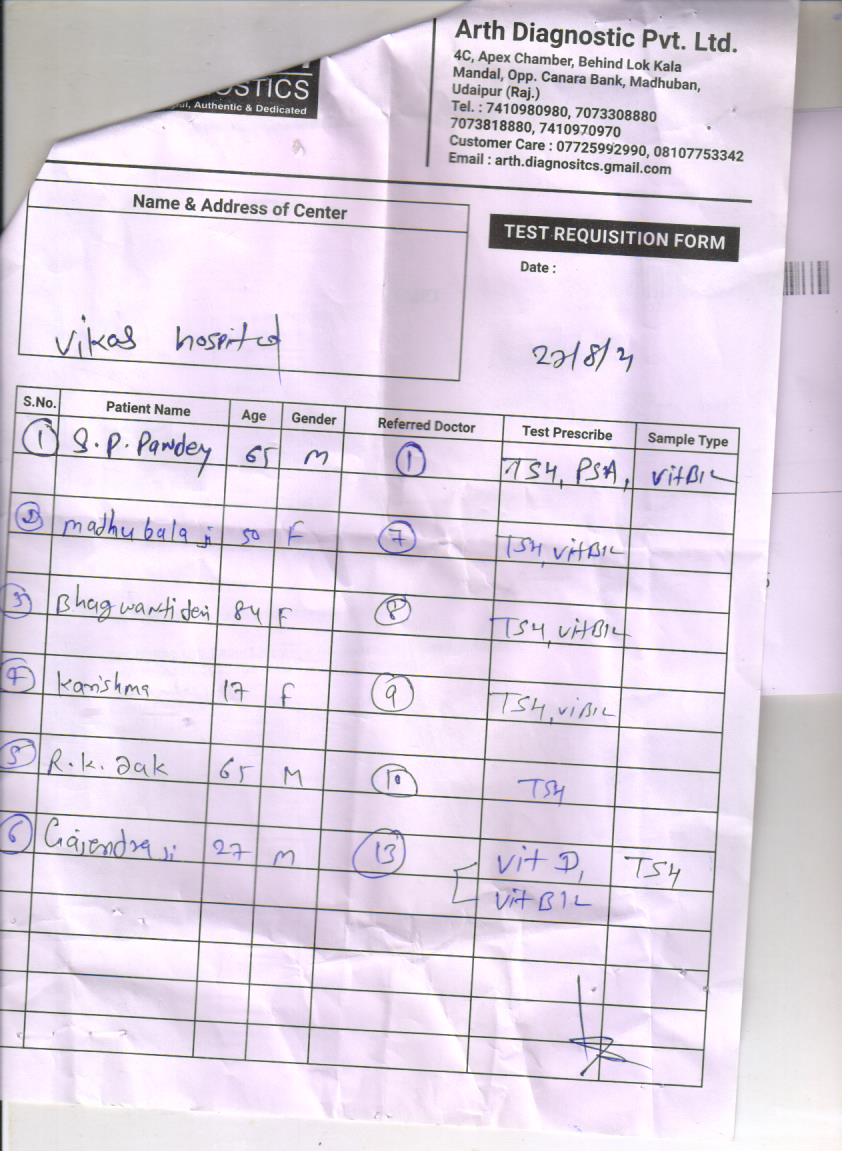 OSTICS
ul, Authentic & Dedicated
Arth Diagnostic Pvt. Ltd.
4C, Apex Chamber, Behind Lok Kala
Mandal, Opp. Canara Bank, Madhuban,
Udaipur (Raj.)
Tel. : 7410980980, 7073308880
7073818880, 7410970970
Customer Care : 07725992990, 08107753342
Email : arth.diagnositcs.gmail.com
Name & Address of Center
Vikas hospital
TEST REQUISITION FORM
Date :
22/8/21
S.No. Patient Name Age Gender Referred Doctor Test Prescribe Sample Type
1 S.P. Pandey 65 M 1 TSH, PSA, VitB12
2 madhu bala ji 50 F 7 TSH, vitB12
3 Bhagwanti devi 84 F 8 TSH, vitB12
4 Karishma 17 F 9 TSH, viB12
5 R.K. Jak 65 M 10 TSH
6 Gajendra ji 27 M 13 Vit D, TSH
Vit B12